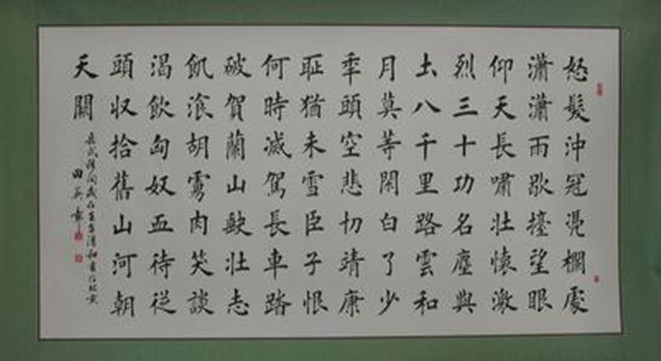 怒髮沖冠凴欄處
瀟瀟雨歇擡望眼
仰天長嘯壯懷激
烈三十功名塵與
土八千里路雲和
月莫等閑白了少
年頭空悲切靖康
耻猶未雪臣子恨
何時滅駕長車踏
破賀蘭山缺壯志
飢飡胡虜肉笑談
渴飲匈奴血待從
頭収拾舊山河朝
天闕
田英章